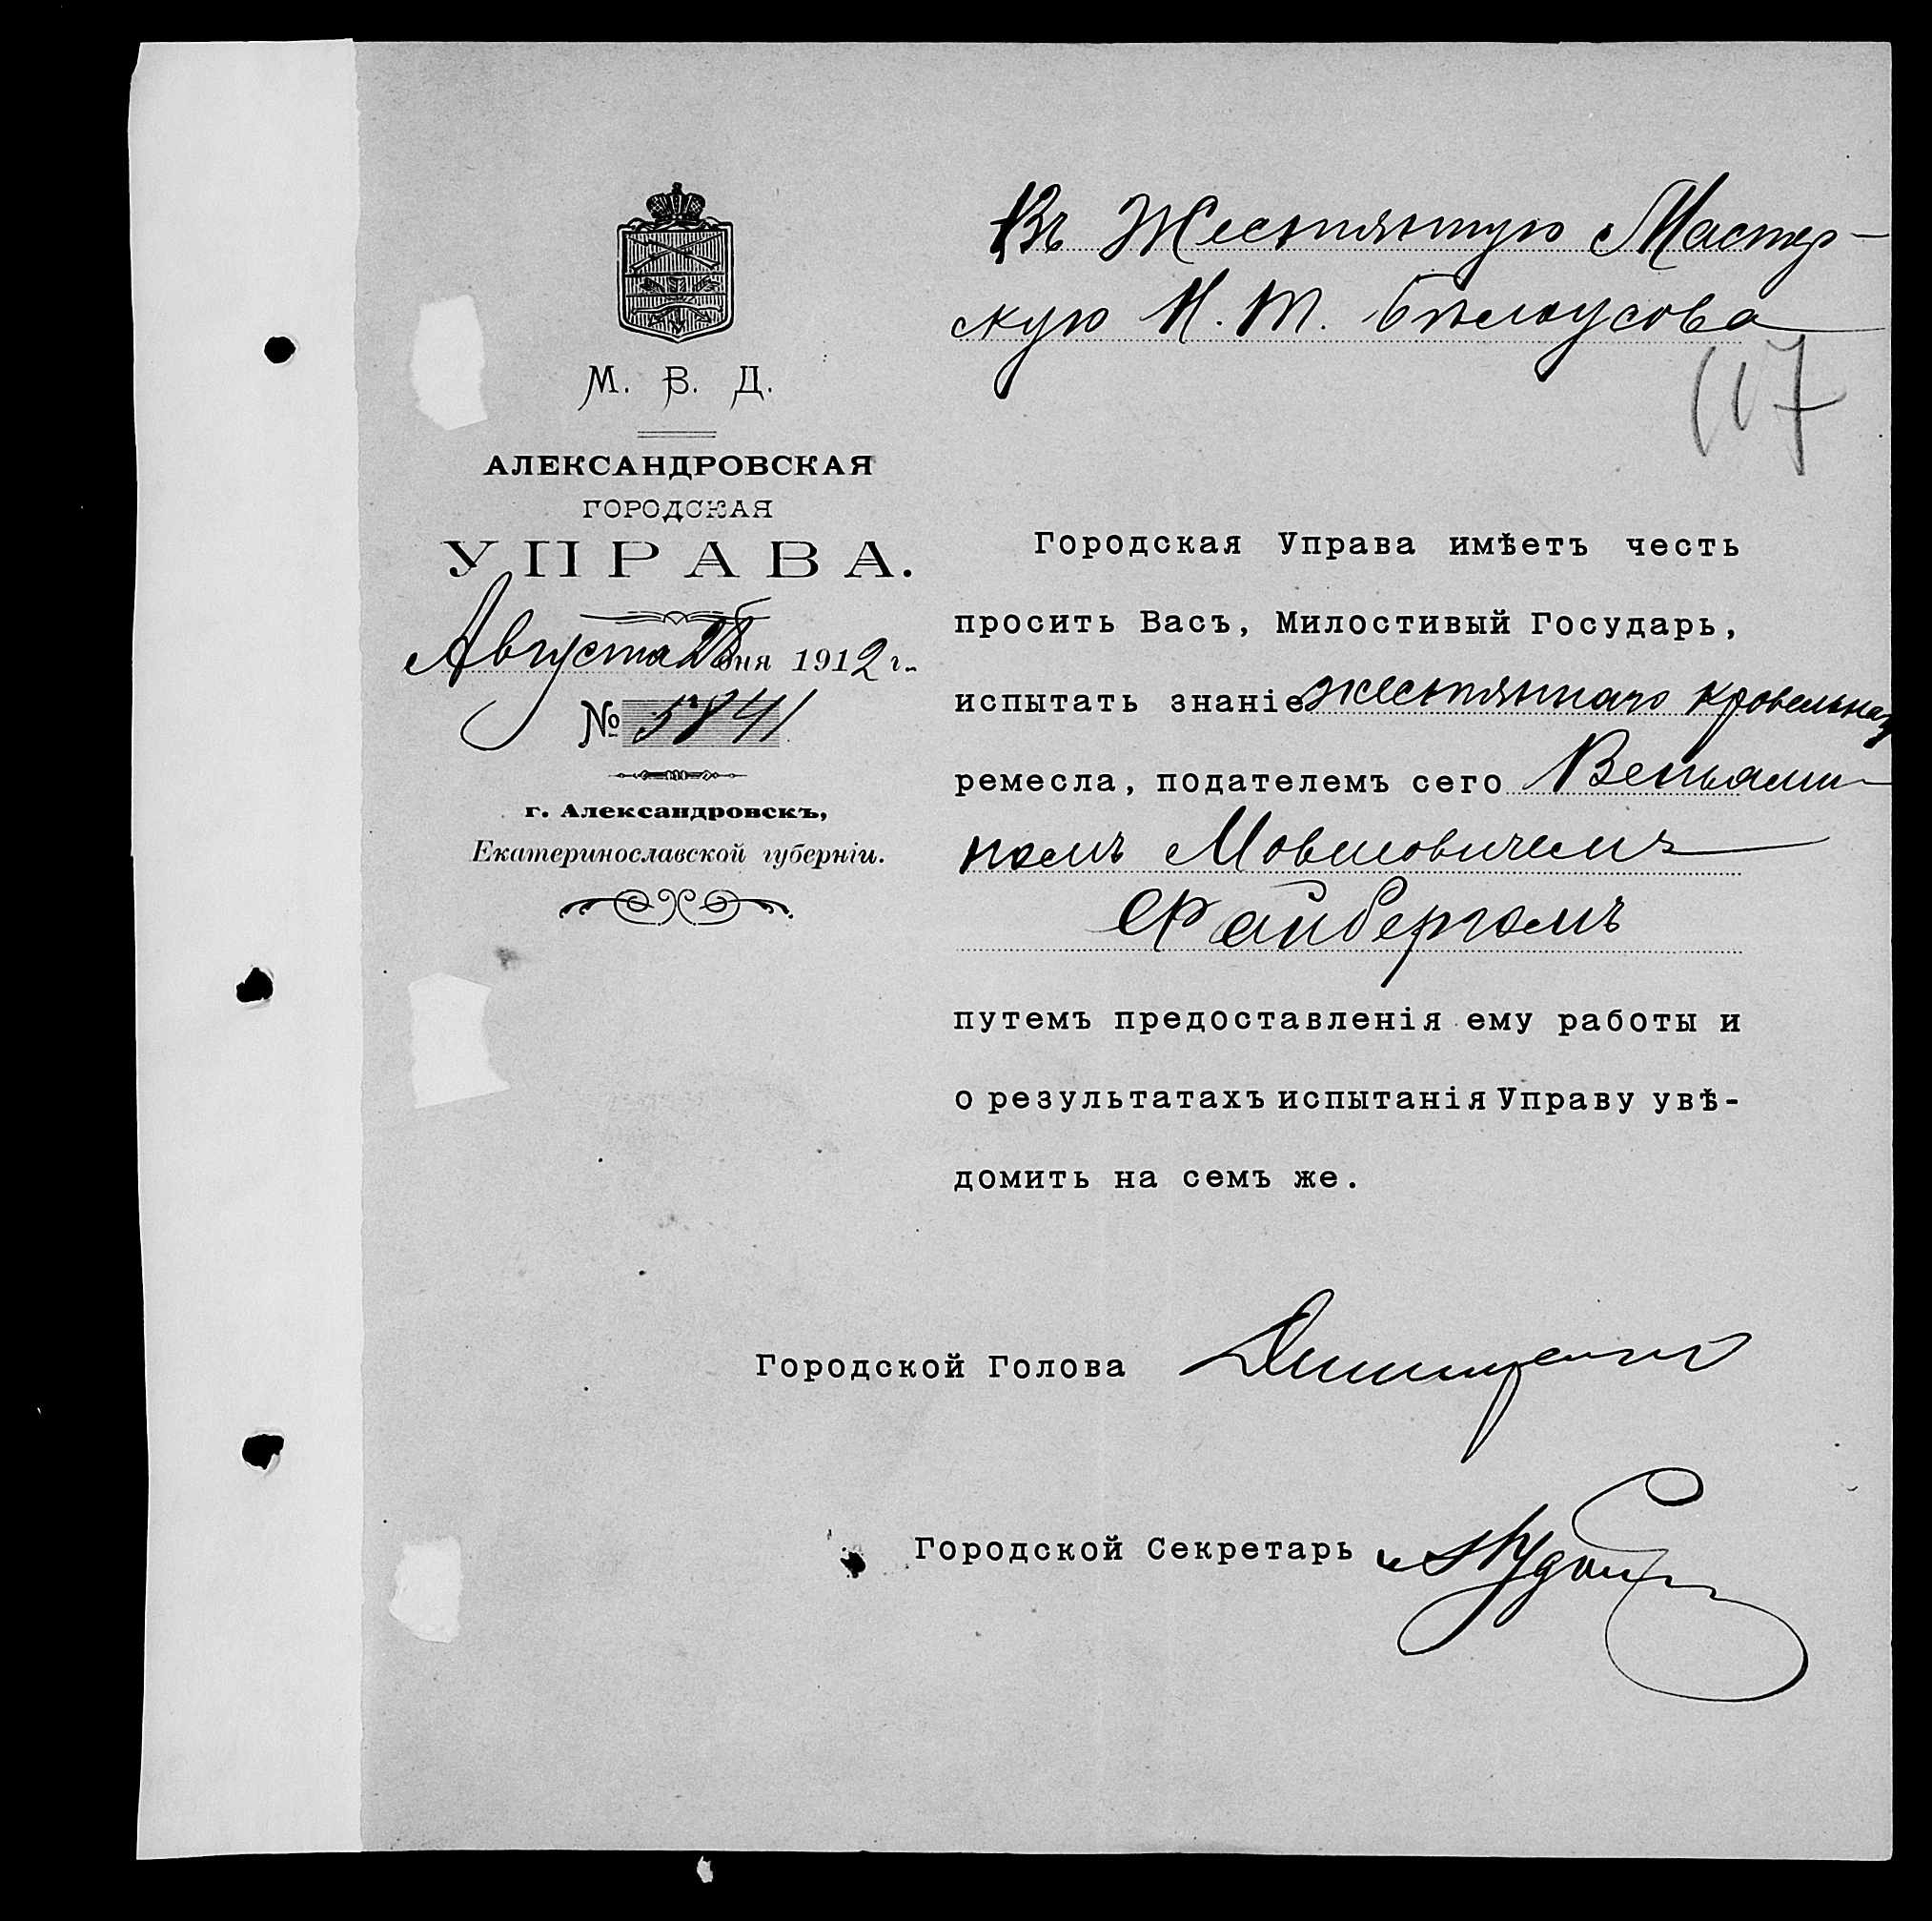 М. В. Д.
АЛЕКСАНДРОВСКАЯ
ГОРОДСКАЯ
УПРАВА.
Августа 28 дня 1912 г.
№ 5841
г. Александровскъ,
Екатеринославской губерніи.
Въ Жестяную Мастер-
скую И. Т. Бѣлоусова
117
Городская Управа имѣетъ честь
просить Васъ, Милостивый Государь,
испытать знаніе жестяннаго кровельнаго
ремесла, подателемъ сего Веньями-
номъ Мовшовичемъ
Файбергомъ
путемъ предоставленія ему работы и
о результатахъ испытанія Управу увѣ-
домить на семъ же.
Городской Голова
Городской Секретарь